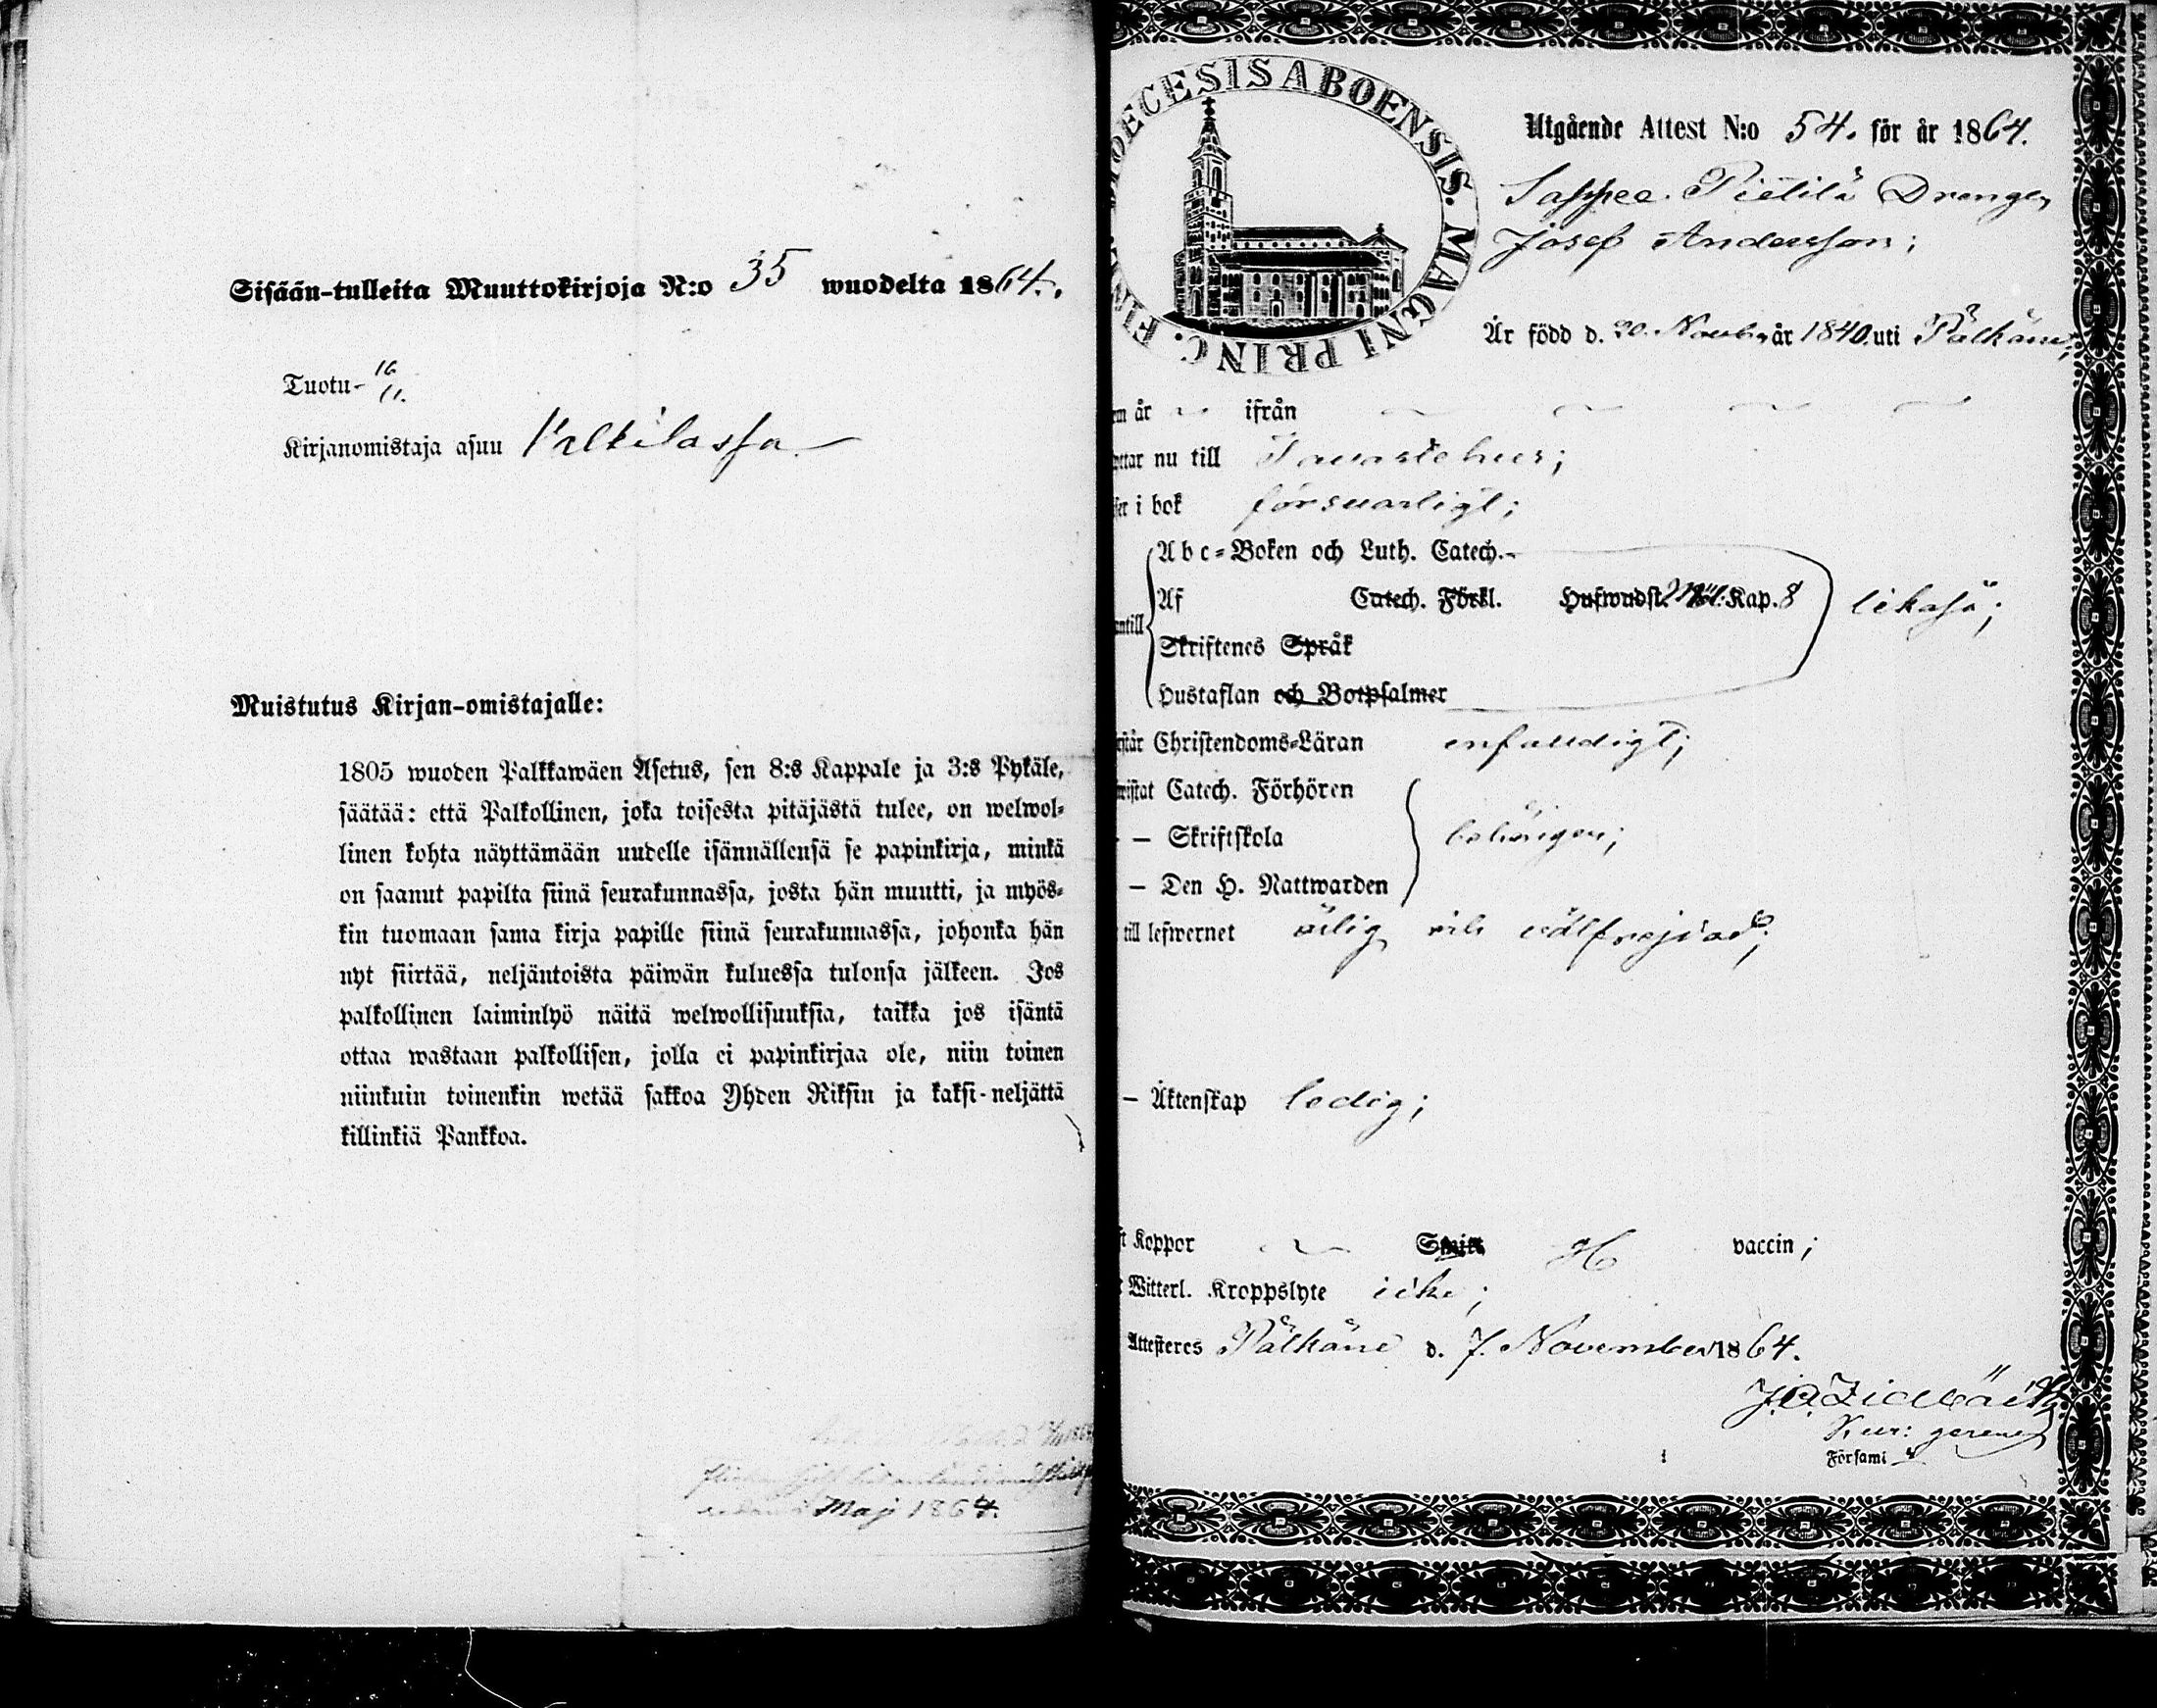 Sisään-tulleita Muuttokirjoja N:o 35 wuodelta 1864.
Tuotu- 16/11.
Kirjanomistaja asuu
Muistutus Kirjan-omistajalle:
1805 wuoden Palkkawäen Asetus, sen 8:s Kappale ja 3:s Pykäle,
säätää: että Palkollinen, joka toisesta pitäjästä tulee, on welwol-
linen kohta näyttämään uudelle isännällensä se papinkirja, minkä
on saanut papilta siinä seurakunnassa, josta hän muutti, ja myös-
kin tuomaan sama kirja papille siinä seurakunnassa, johonka hän
nyt siirtää, neljäntoista päiwän kuluessa tulonsa jälkeen. Jos
palkollinen laiminlyö näitä welwollisuuksia, taikka jos isäntä
ottaa wastaan palkollisen, jolla ei papinkirjaa ole, niin toinen
niinkuin toinenkin wetää sakkoa Yhden Riksin ja kaksi-neljättä
killinkiä Pankkoa.
Maj 1864.
DIOECESIS ABOENSIS. MAGNI PRINC. FIN
Utgående Attest N:o 54. för år 1864.
Sappee Pietilä Drengen
Josef Andersson;
Är född d. 20. Novber år 1840. uti Pälkäne;
år ifrån
nu till Tavastehus;
i bok försvarligt;
Abc-Boken och Luth. Catech.
Af Catech. Förkl. Hufwudst. Kap. 8 likaså;
Skriftenes Språk
Hustaflan och Botpsalmer
Christendoms-Läran enfaldigt;
Catech. Förhören
— Skriftskola behörigen;
— Den H. Nattwarden
till lefwernet ärlig och välfrejdad;
— Äktenskap ledig;
Koppor vaccin;
Witterl. Kroppslyte icke;
Attesteres Pälkäne d. 7. November 1864.